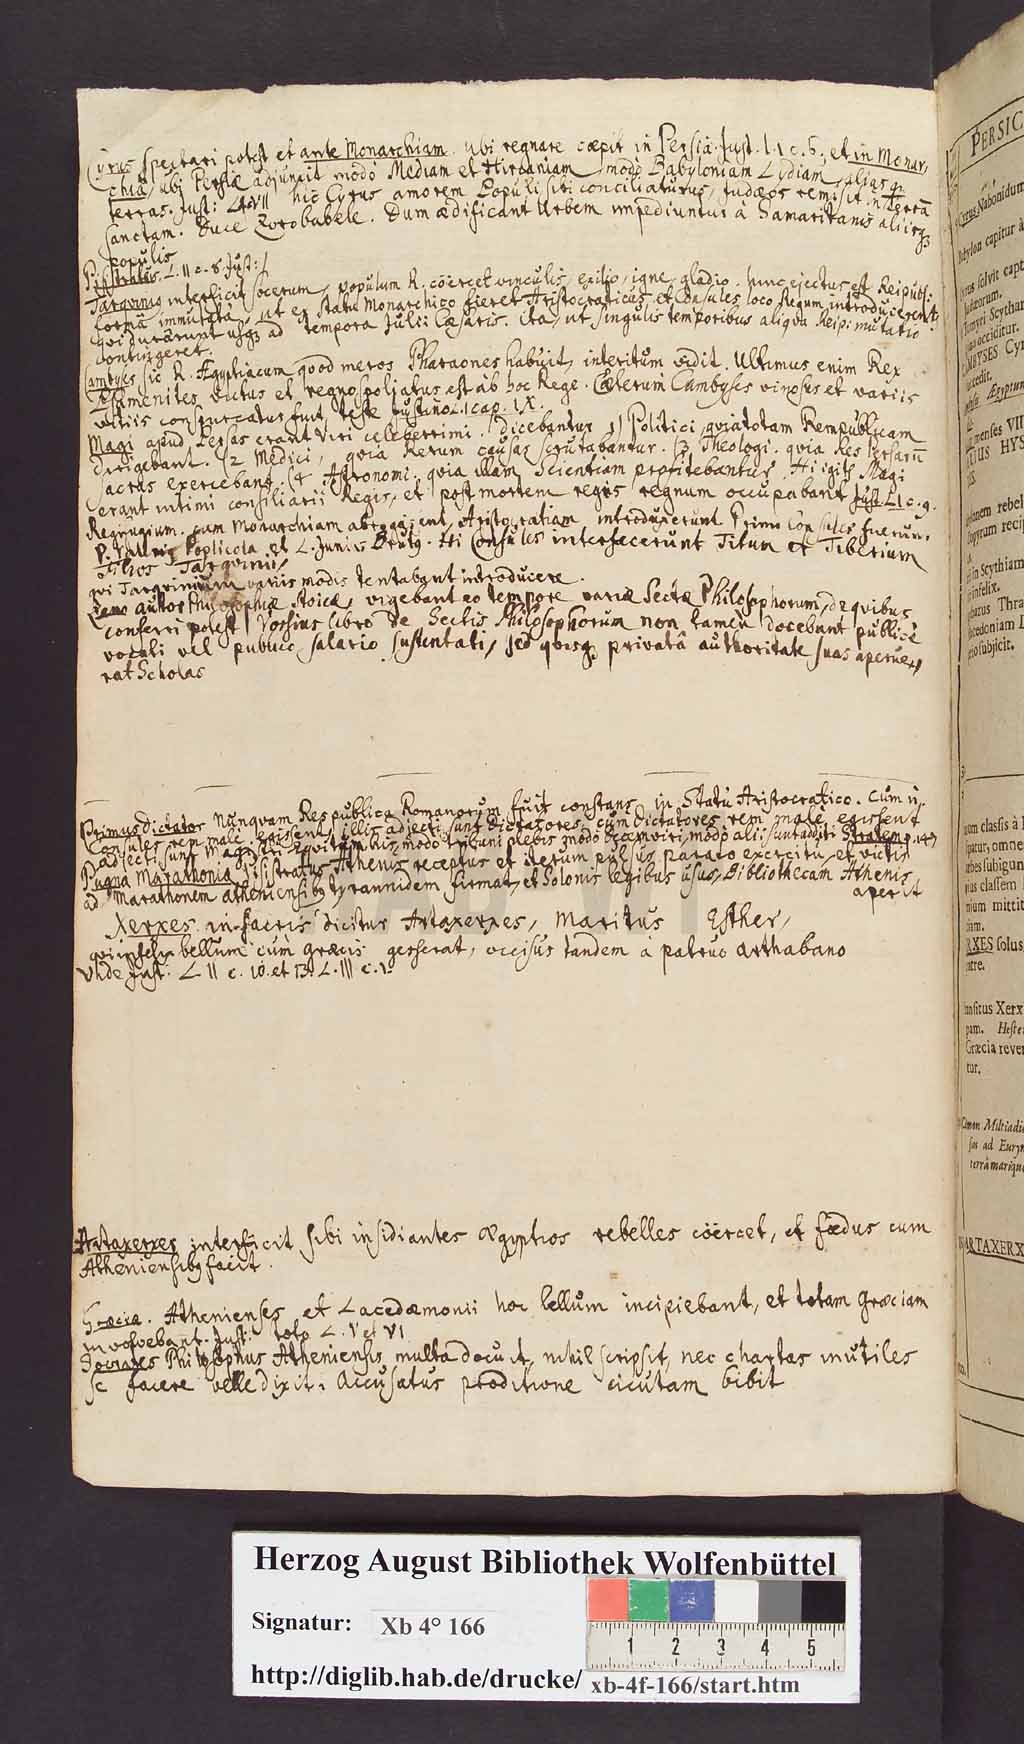 Cyrus spectari potest et ante Monarchiam. ubi regnare cœpit in Persiâ. Just. l. 1 c. 6, et in Monar,
chiâ, ubi Persiæ adjunxit modò Mediam et Hircaniam, modò Babyloniam Lydiam, alias qꝫ
terras. Just: hic Cyrus amorem Populi sibi conciliaturus, Judæos remisit in Terrã
sanctam. Duce Zorobabele. Dum ædificant Urbem impediuntur à Samaritanis aliisqꝫ
populis
Pisistratus. L. II c. 8. Just:
Tarqvinius interficit socerum, populum R. cöercet vinculis, exilio, igne, gladio. hinc ejectus est Reipubl:
formâ immutatâ, ut ex statu Monarchico fieret Aristocraticus, et Consules loco Regum introducerent,
qvi durarunt usqꝫ ad tempora Julii Cæsaris. ita, ut singulis temporibus aliqva Reip: mutatio
contingeret.
Cambyses sic R. Ægyptiacum qvod meros Pharaones habuit, interitum vidit. Ultimus enim Rex
Psamenites victus et regno spoliatus est ab hoc Rege. Cæterum Cambyses vinosus et variis
vitiis conspurcatus fuit teste Justino L. 1 cap. IX.
Magi apud Persas erant Viri celeberrimi. Dicebantur 1) Politici, qvia totam Rempublicam
dirigebant. (2 Medici, qvia Rerum causas scrutabantur. (3 Theologi. qvia Res Persarũ
sacras exercebant. (4. Astronomi. qvia illam Scientiam profitebantur. Hi igitur Magi
erant intimi consiliarii Regis, et post mortem regis regnum occupabant Just L 1 c. 9.
Regifugium. cum Monarchiam abroggssent, Aristocratiam introduxerunt Primi Consules fuerun.
P. Valerius Poplicola et L. Junius Brutus. Hi Consules interfecerunt Titum et Tiberium
filios Tarqvinii,
qvi Tarqvinium variis modis tentabant introducere.
Zeno autor Philosophiæ Stoicæ, vigebant eo tempore variæ Sectæ Philosophorum, de qvibus
conferri potest Vossius libro de Sectis Philosophorum non tamen docebant publicè
vocati vel publico salario sustentati, sed qvisqꝫ privatâ authoritate suas aperue,,
rat Scholas
Primus Dictator nunqvam Respublica Romanorum fuit constans in Statu Aristocratico. cum n.
Consules rem malè egissent, illis adjecti sunt Dictatores, cum Dictatores rem malè egissent
adjecti sunt Magistri Eqvitum his, modò tribuni plebis modò Decemviri, modò alii sunt additi
Pugna Marathonia Pisistratus Athenis receptus et iterum pulsus parato exercitu, et victis
ad Marathonem atheniensibꝫ tyrannidem firmat, et Solonis legibus usus, Bibliothecam Athenis
aperit
Xerxes. in sacris dicitur Artaxerxes, Maritus Esther,
qvi infelix bellum cum græcis gesserat, occisus tandem à patruo arthabano
Vide Just: L II c. 10. et 13. L. III c. 1.
Artaxerxes interficit sibi insidiantes Ægyptios rebelles cöercet, et fœdus cum
Atheniensibꝫ facit.
Græcia. Athenienses et Lacedæmonii hoc bellum incipiebant, et totam græciam
involvebant. Just: toto L. V et VI
Socrates Philosophus Atheniensis multa docuit, nihil scripsit, nec chartas inutiles
se facere velle dixit. accusatus proditione cicutam bibit
PERSIC
Cyrus Nabonidum
Babylon capitur à
CAMBYSES Cyr
Ægyptum
menses VII
HYS
in Scythiam
infelix.
Thra
subjicit.
classis à
RXES solus
Xerx
Heste
Græcia rever
tur.
Cimon Miltiadis
sas ad Eurym
terrâ mariqu
ARTAXERX
Herzog August Bibliothek Wolfenbüttel
Signatur: Xb 4° 166
1 2 3 4 5
http://diglib.hab.de/drucke/ xb-4f-166/start.htm